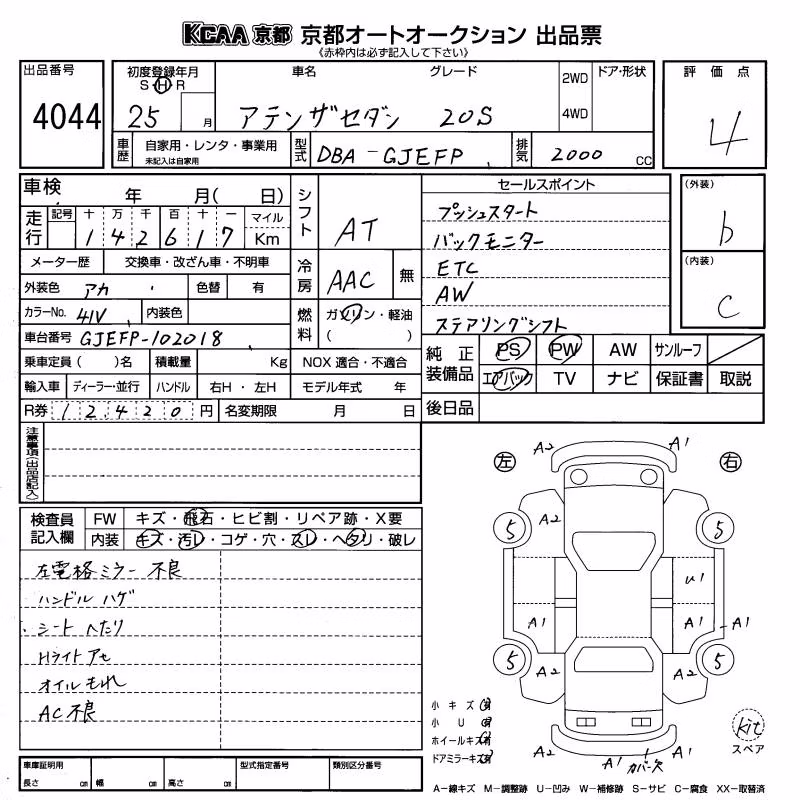 KCAA 京都 京都オートオークション 出品票
《赤枠内は必ず記入して下さい》
出品番号 4044
初度登録年月 S・H・R 25 月
車名 アテンザセダン グレード 20S
2WD 4WD ドア・形状
評価点 4
車歴 自家用・レンタ・事業用 未記入は自家用
型式 DBA-GJEFP
排気 2000 CC
車検 年 月( 日)
走行 記号 十 万 千 百 十 一 マイル
142617 Km
メーター歴 交換車・改ざん車・不明車
外装色 アカ 色替 有
カラーNo. 41V 内装色
車台番号 GJEFP-102018
乗車定員( )名 積載量 Kg NOX 適合・不適合
輸入車 ディーラー・並行 ハンドル 右H・左H モデル年式 年
R券 12420円 名変期限 月 日
シフト AT
冷房 AAC 無
燃料 ガソリン・軽油
( )
セールスポイント
プッシュスタート
バックモニター
ETC
AW
ステアリングシフト
(外装) b
(内装) C
純正装備品 PS PW AW サンルーフ
エアバック TV ナビ 保証書 取説
後日品
注意事項(出品店記入)
検査員記入欄 FW キズ・飛石・ヒビ割・リペア跡・X要
内装 キズ・汚レ・コゲ・穴・スレ・ヘタリ・破レ
左電格ミラー 不良
ハンドル ハゲ
・シート へたり
Hライト アセ
オイルもれ
AC不良
左 右
A2 A1
A2 A1
5 5
A2
U1
A1 A1 -A1
5 5
A2 A2
A2 A1 カバー欠 A1
小キズ 有
小U 有
ホイールキズ
ドアミラーキズ
kit
スペア
車庫証明用 長さ cm 幅 cm 高さ cm
型式指定番号 類別区分番号
A-線キズ M-調整跡 U-凹み W-補修跡 S-サビ C-腐食 XX-取替済